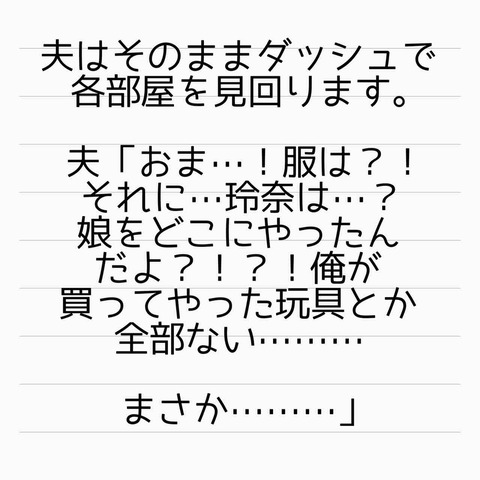 夫はそのままダッシュで
各部屋を見回ります。
夫「おま…！服は？！
それに…玲奈は…？
娘をどこにやったん
だよ？！？！俺が
買ってやった玩具とか
全部ない………
まさか………」